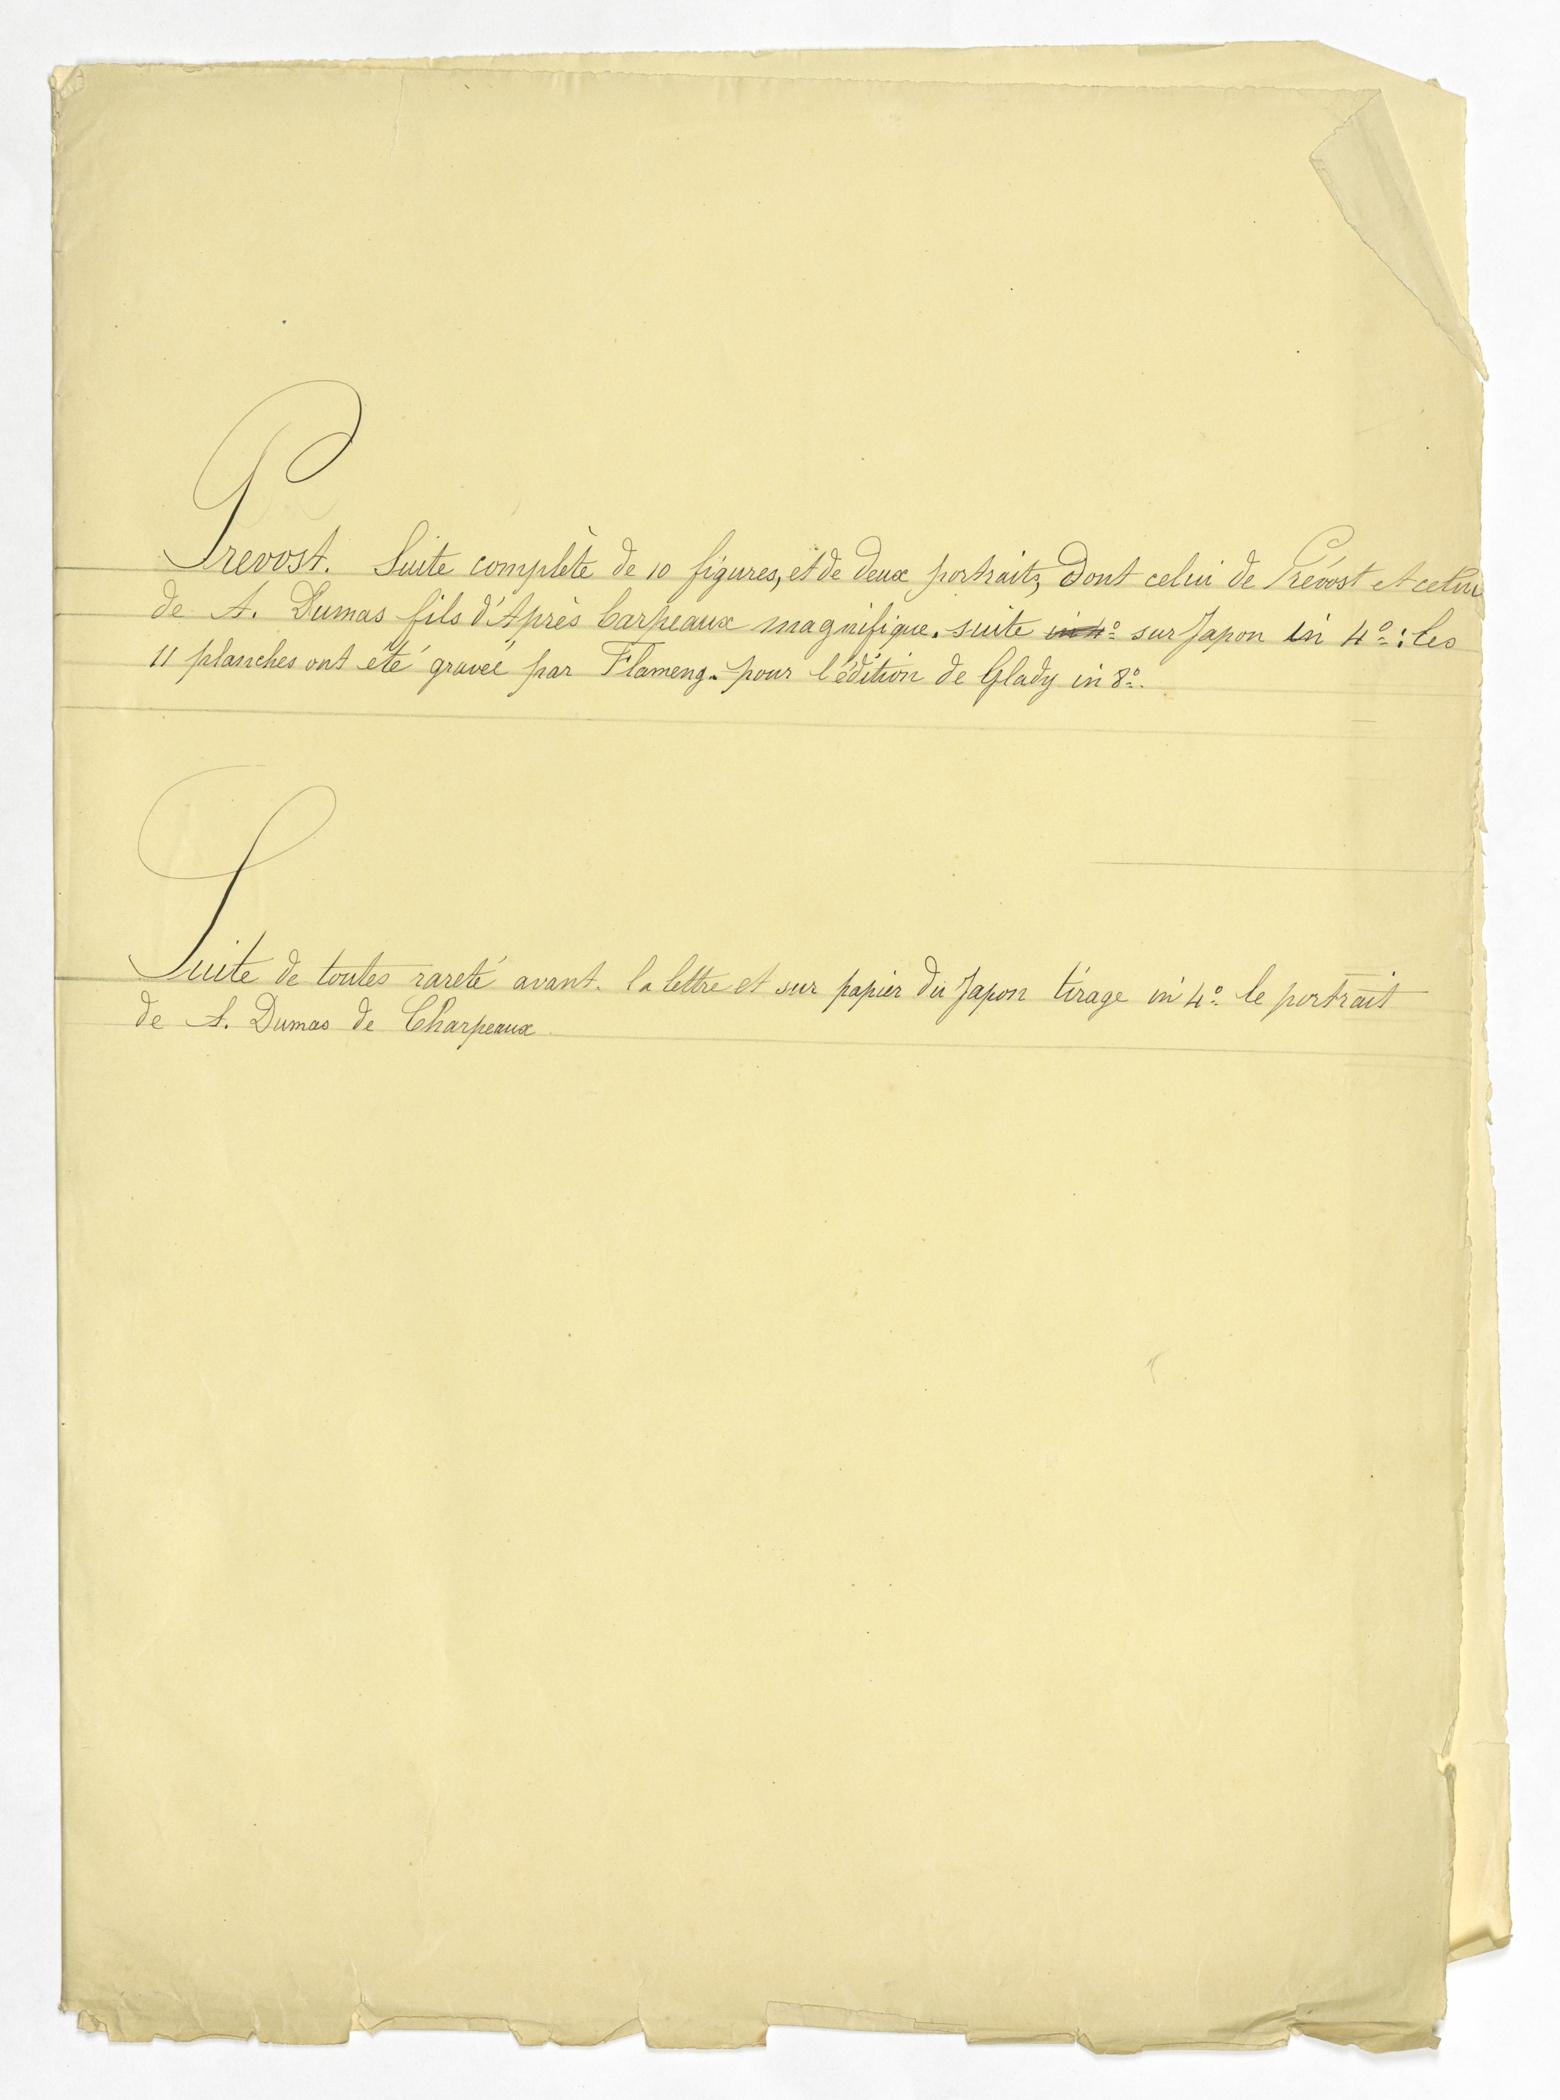 Prevost. Suite complète de 10 figures, et de deux portraits, Dont celui de Prévost et celui
de A. Dumas fils d'Après Carpeaux magnifique. suite in 4º sur Japon in 4º: les
11 planches ont été graveé par Flameng. pour l'édition de Glady in 8º.
Suite de toutes rareté avant. la lettre et sur papier du Japon tirage in 4º le portrait
de A. Dumas de Charpeaux